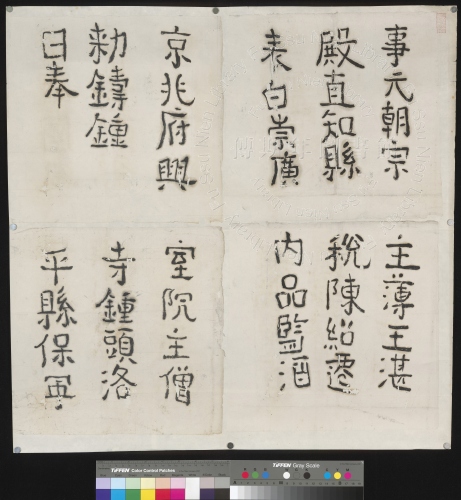 事元朝宗
殿直知縣
表白崇廣
京兆府興
勑鑄鍾
日奉
主薄王湛
稅陳紹遷
内品監酒
室院主僧
寺鍾頭洛
平縣保
TIFFEN Color Control Patches
TIFFEN Gray Scale